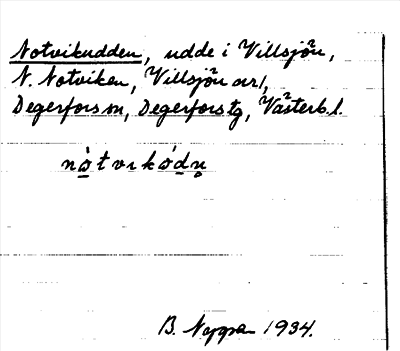 Notvikudden, udde i Villsjön,
N. Notviken, Villsjön ar/,
Degerfors sn, Degerfors tg, Västerb. l.
nò̲tvɩkó̲d̲n̥
B. Nyppa 1934.